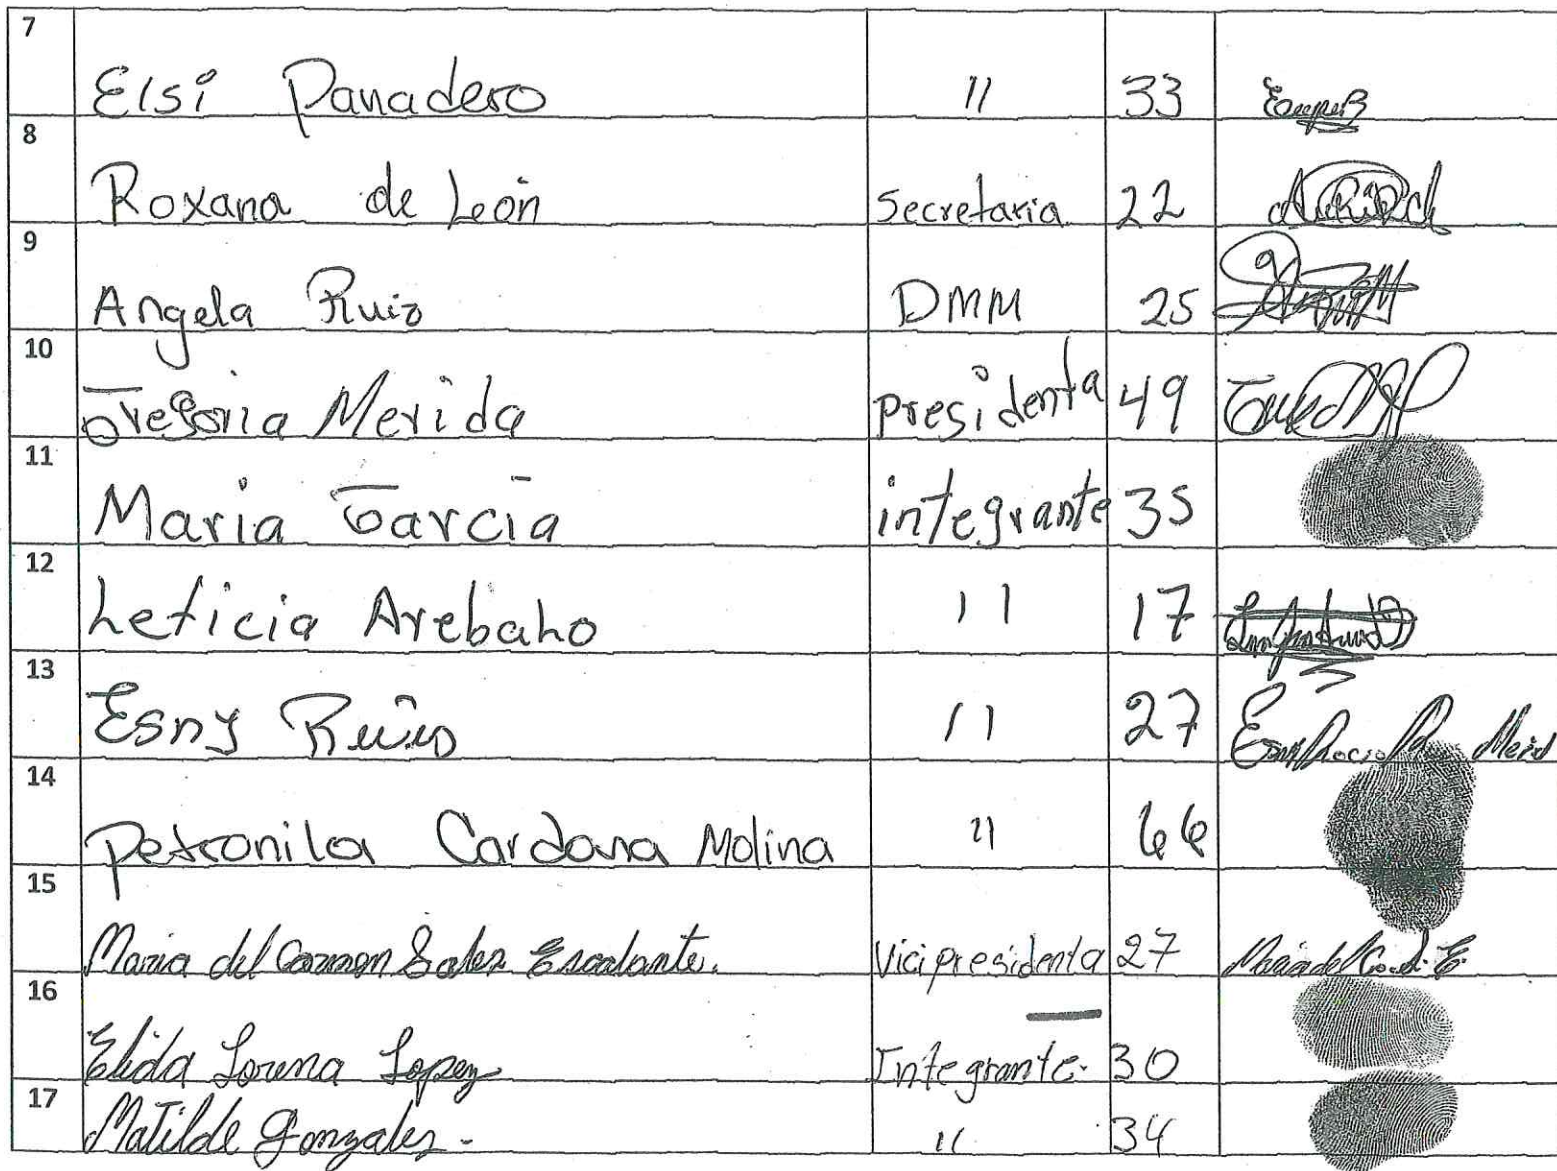 7
Elsi Panadero " 33
8
Roxana de León Secretaria 22
9
Angela Ruiz DMM 25
10
Gregoria Merida presidenta 49
11
Maria García integrante 35
12
Leticia Arebalo 11 17
13
Esny Ruiz 11 27
14
Petronila Cardona Molina " 66
15
Maria del Carmen Sales Escalante. Vicipresidenta 27
16
Elida Lorena Lopez Integrante. 30
17
Matilde Gonzales - " 34